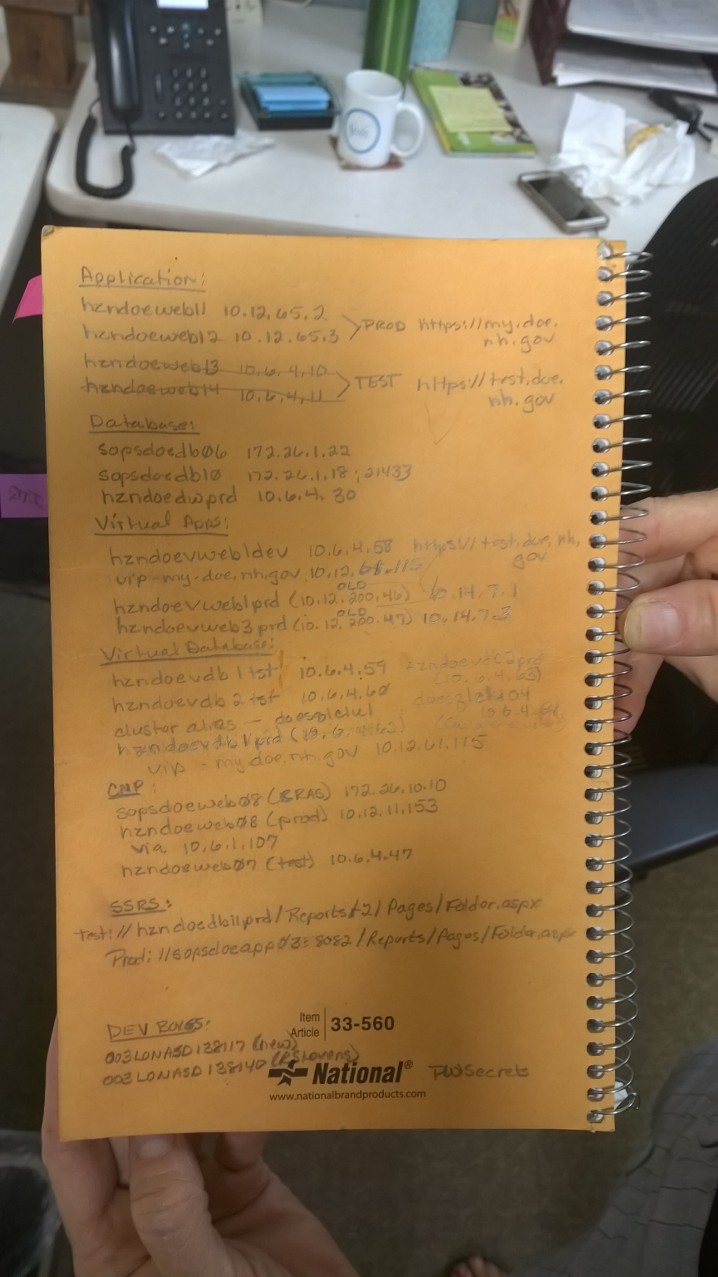 Application:
hzndoeweb11 10.12.65.2
hzndoeweb12 10.12.65.3 > PROD https://my.doe.
nh.gov
hzndoeweb13 10.6.4.10
hzndoeweb14 10.6.4.11 > TEST https://test.doe.
nh.gov
Database:
sopsdoedb06 172.26.1.22
sopsdoedb10 172.26.1.18;21433
hzndoedwprd 10.6.4.30
Virtual Apps:
hzndoevweb1dev 10.6.4.58 https://test.doe.nh.
gov
vip-my.doe.nh.gov 10.12.
OLD
hzndoevweb1prd (10.12.200.46) 10.14.7.1
OLD
hzndoevweb3prd (10.12.200.47) 10.14.7.3
Virtual Database:
hzndoevdb1tst 10.6.4.59
hzndoevdb2tst 10.6.4.60
cluster alias -
vip - my.doe.nh.gov 10.12.61.115
CNP:
sopsdoeweb08 172.26.10.10
hzndoeweb08 (prod) 10.12.11.153
via 10.6.1.107
hzndoeweb07 (test) 10.6.4.47
SSRS:
Test://hzndoedb11prd/Reports /Pages/Folder.aspx
Prod://sopsdoeapp03:8082/Reports/Pages/Folder.aspx
DEV BOXES:
003LONASD138117 (new)
003LONASD138140
Item
Article 33-560
National®
www.nationalbrandproducts.com
PWSecrets